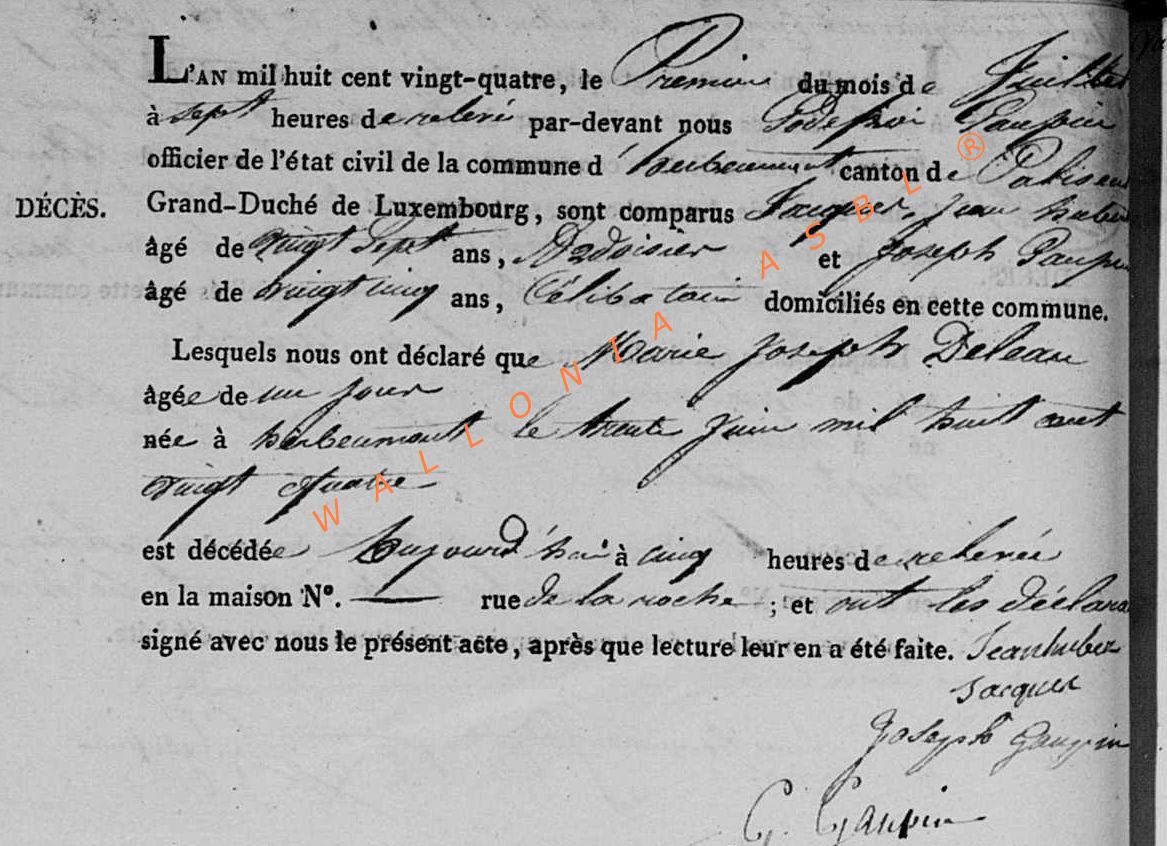 L'AN mil huit cent vingt-quatre, le Premier du mois de Juillet
à sept heures de relevé par-devant nous Godefroi Gaupin
officier de l'état civil de la commune d'herbeumont canton de Paliseul
DÉCÈS.
Grand-Duché de Luxembourg, sont comparus Jacques, Jean hubert
âgé de vingt Sept ans, et Joseph Gaupin
âgé de vingt cinq ans, Célibataire domiciliés en cette commune.
Lesquels nous ont déclaré que Marie Joseph Deleau
âgée de un jour
née à herbeumont le trente Juin mil huit cent
vingt quatre
est décédée Aujourd'hui à cinq heures de relevée
en la maison N°. — rue de la roche ; et ont les déclara
signé avec nous le présent acte, après que lecture leur en a été faite. Jeanhuber
Jacques
Joseph Gaupin
G. Gaupin
WALLONIA ASBL ®